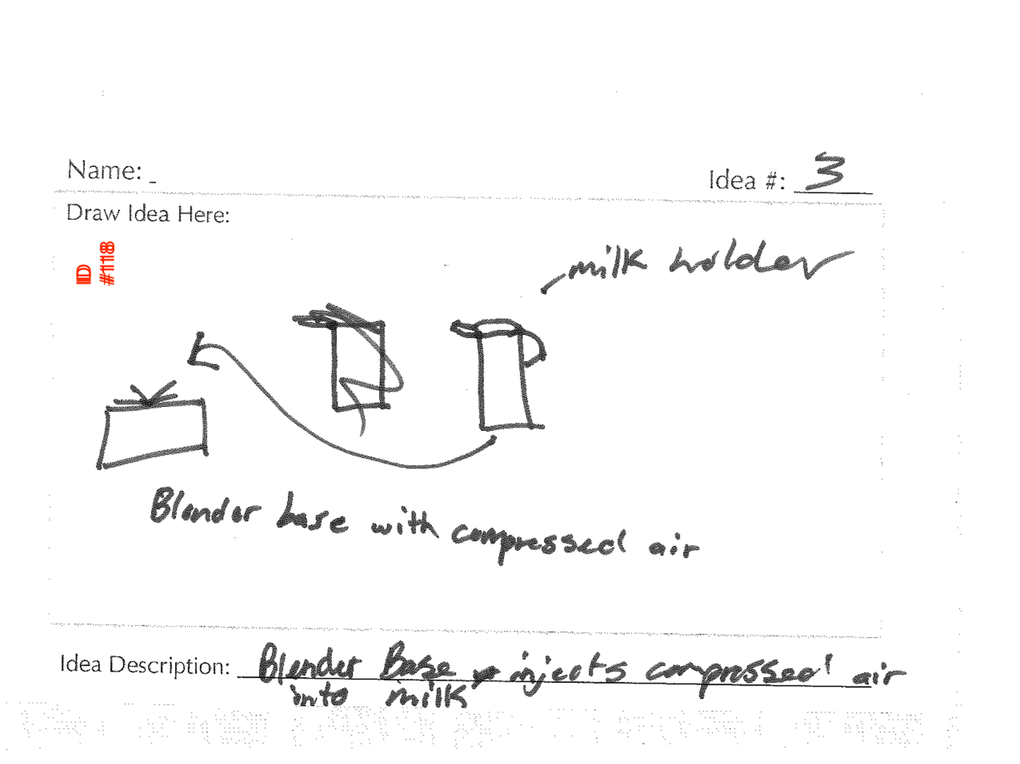 Name: _
Idea #: 3
Draw Idea Here:
ID #118
milk holder
Blender base with compressed air
Idea Description: Blender Base injects compressed air
into milk